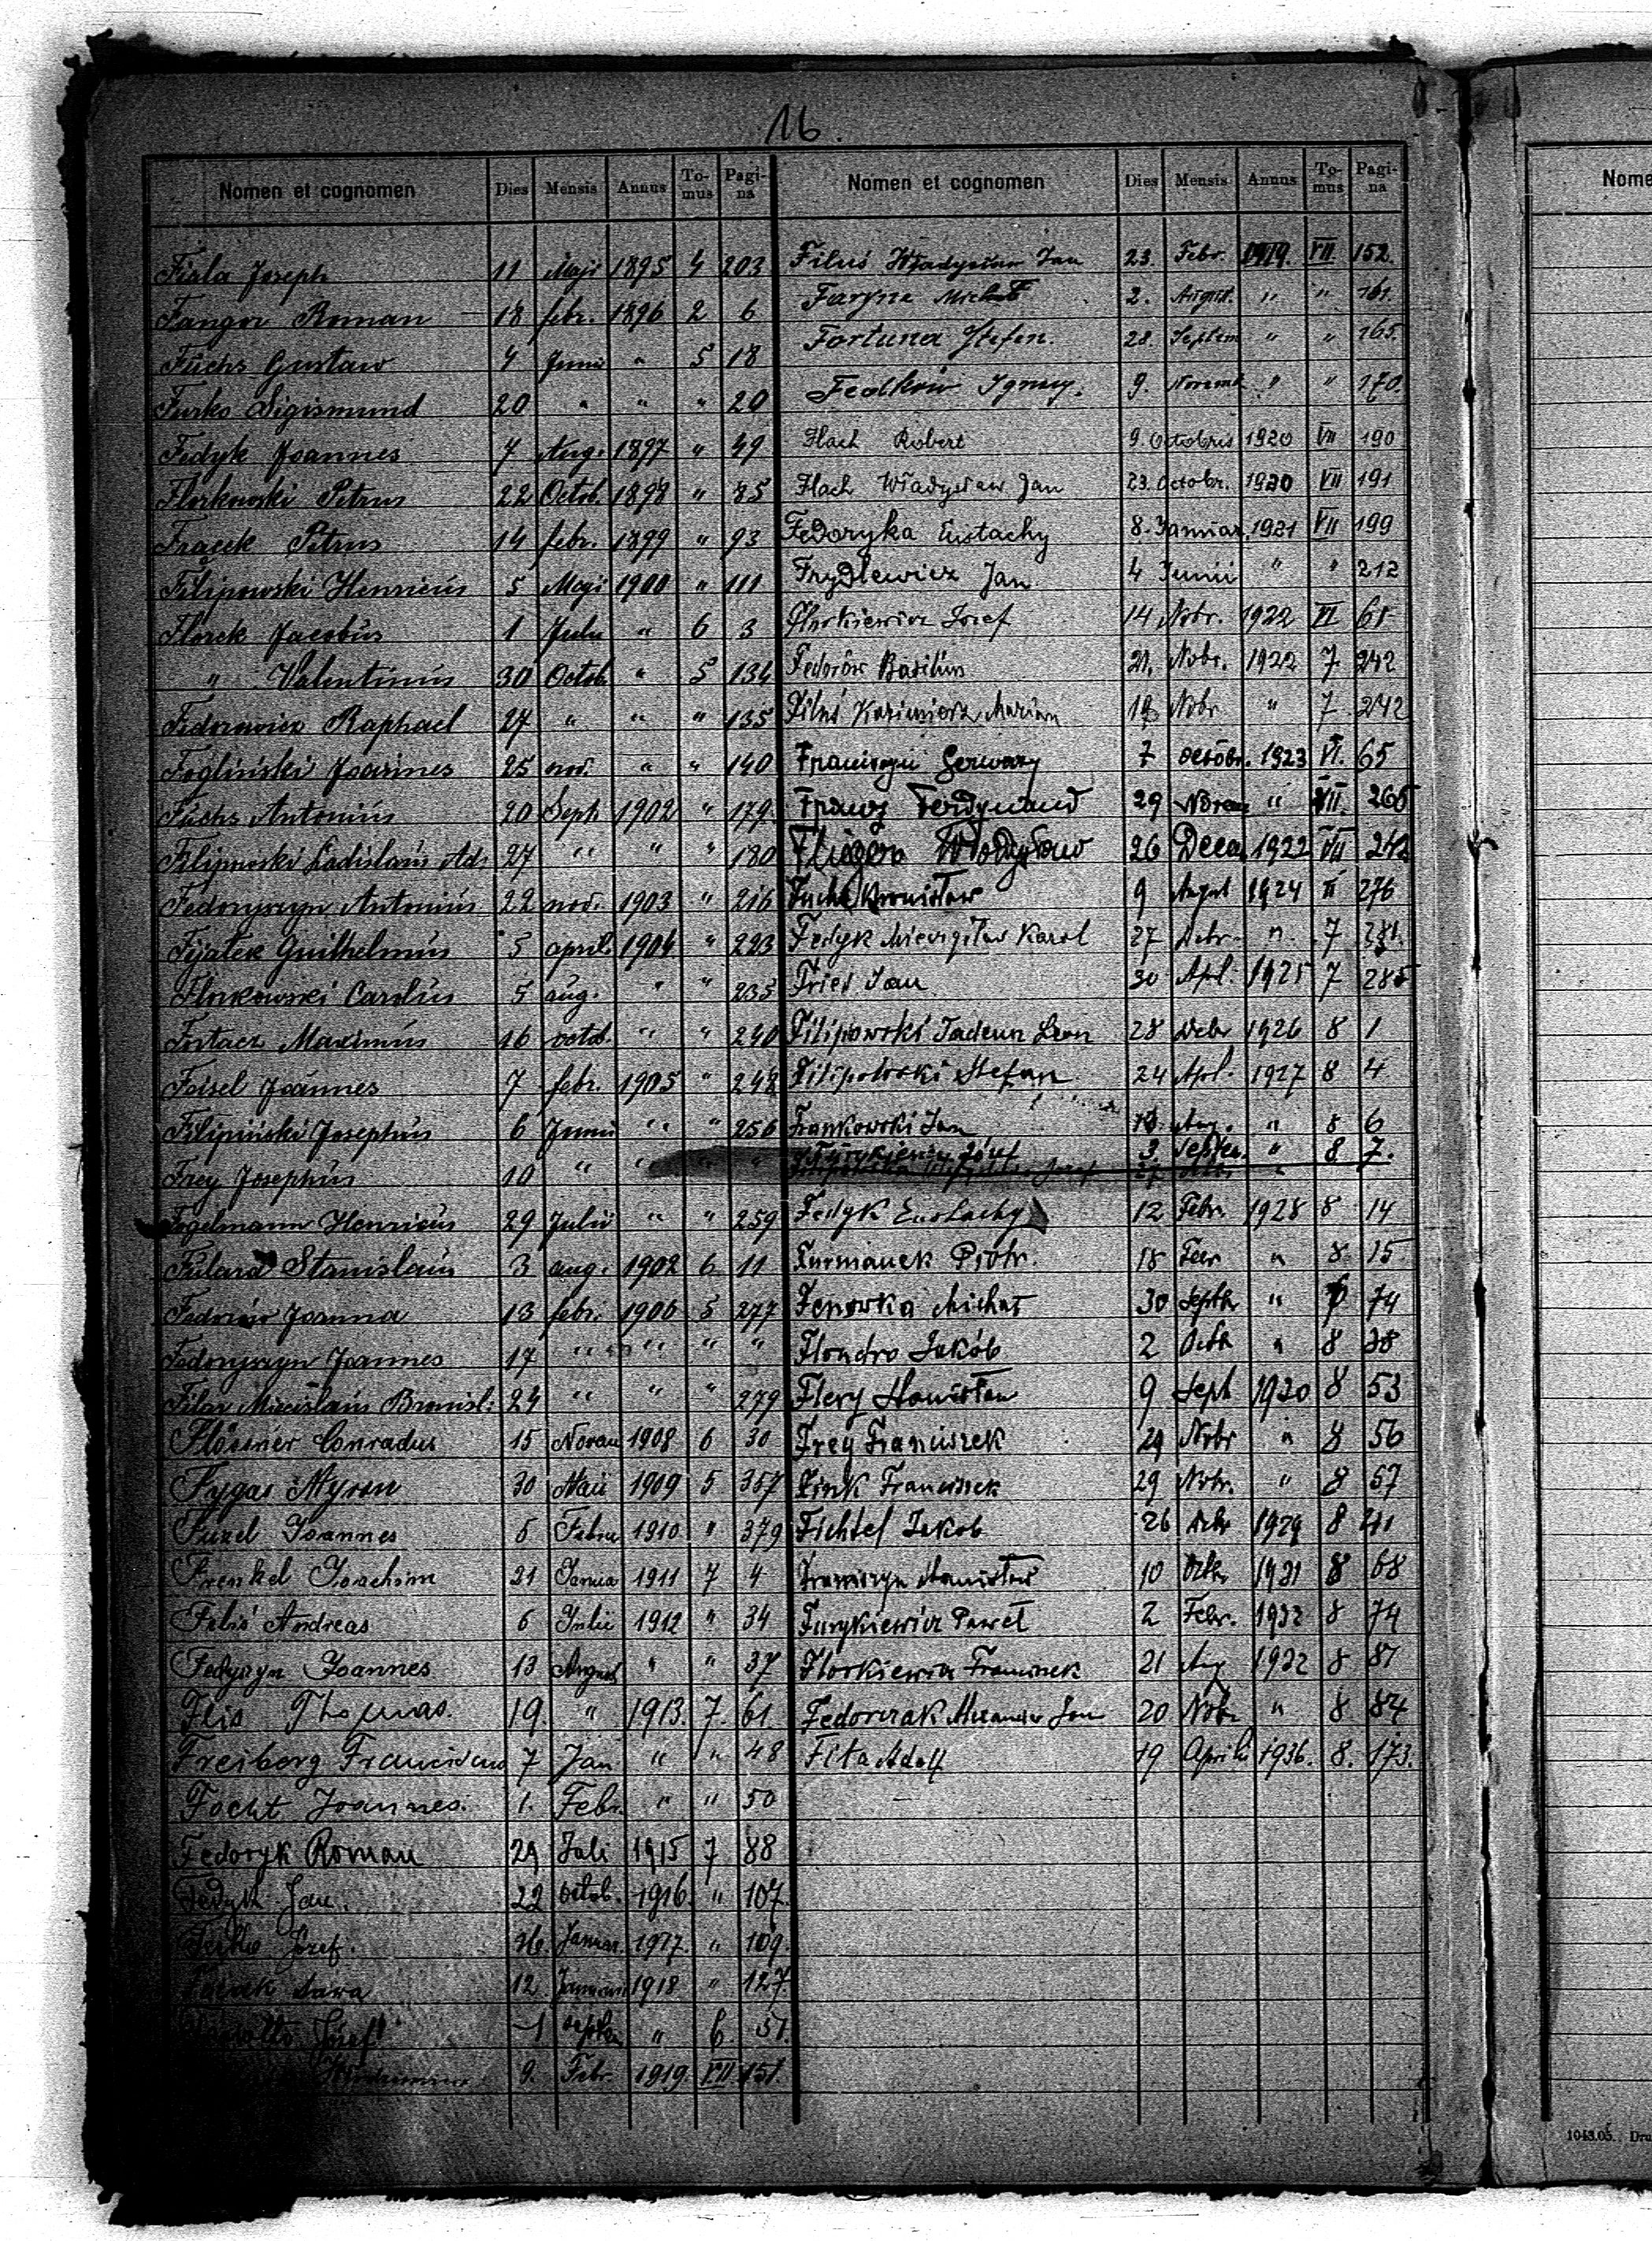 16.
Nomen et cognomen Dies Mensis Annus To-mus Pagi-na
Fiala Joseph 11 Maji 1895 4 203
Fangor Roman 18 febr. 1896 2 6
Fuchs Gustaw 4 Junii " 5 18
Furko Sigismund 20 " " " 20
Fedyk Joannes 7 Aug. 1897 " 49
Florkowski Petrus 22 Octob. 1898 " 85
Fracek Petrus 14 febr. 1899 " 93
Filipowski Henricus 5 Maji 1900 " 111
Florek Jacobus 1 Julii " 6 3
" Valentinus 30 Octob. " 5 134
Fedorowicz Raphael 27 " " " 135
Fogliński Joannes 25 nov. " " 140
Fuchs Antonius 20 Sept 1902 " 179
Filipowski Ladislaus Ad. 27 " " " 180
Fedoryszyn Antonius 22 nov. 1903 " 216
Fijałek Guilhelmus 5 april. 1904 " 223
Florkowski Carolus 5 aug. " " 235
Fortacz Maximus 16 octob. " " 240
Feisel Joannes 7 febr. 1905 " 248
Filipiński Josephus 6 Junii " " 256
Frey Josephus 10 " " " "
Fogelmann Henricus 29 Julii " " 259
Fulara Stanislaus 3 aug. 1902 6 11
Fedorów Joanna 13 febr. 1906 5 277
Fedoryszyn Joannes 17 " " " "
Filar Miecislaus Bronisl. 24 " " " 279
Flössner Conradus 15 Novem 1908 6 30
Fygas Myron 30 Maii 1909 5 357
Fuzel Joannes 5 Febru 1910 " 379
Frenkel Joachim 21 Janua 1911 7 4
Feliś Andreas 6 Julii 1912 " 34
Fedyszyn Joannes 13 August " " 37
Flis Thomas. 19. " 1913. 7. 61
Freiberg Franciscus 7 Jan " " 48
Focht Joannes. 1. Febr. " " 50
Fedoryk Roman 29 Juli 1915 7 88
Fedyk Jan. 22 octob. 1916. " 107.
Józef. 16. Januar. 1917. " 109.
12 Januarii 1918 " 127.
Józef 1 septem " 6. 51.
9. Febr. 1919. VII 151.
Nomen et cognomen Dies Mensis Annus To-mus Pagi-na
Filuś Władysław Jan 23. Febr. 1919. VII. 152.
Faryna Michał 2. August. " " 161.
Fortuna Stefan. 28. Septem " " 165.
Fedków Ignacy. 9. Novemb " " 170.
Flach Robert 9. Octobris 1920 VII 190
Flach Władysław Jan 23. Octobr. 1920 VII 191
Fedoryka Eustachy 8. Januar. 1921 VII 199
Frydlewicz Jan 4 Junii " " 212
Florkiewicz Józef 14 Nobr. 1922 VI 61
Fedorów Basilius 21. Nobr. 1922 7 242
Filuś Kazimierz Marian 19 Nobr. " 7 242
Franciszyn Gerwazy 7 octobr. 1923 VI. 65
Franz Ferdynand 29 Novem " VII. 266
Flieger Władysław 26 Decem 1922 VII 242
Fuchs Bronisław 9 August 1924 276
Fedyk Mieczysław Karol 27 " 7 281.
Fried Jan 30 Apl. 1925 7 285
Filipowski Tadeusz Leon 28 Debr 1926 8 1
Filipowski Stefan 24 Apl. 1927 8 4
Frankowski Jan Aug. " 8 6
Furykiewicz Józef 3. Septem. " 8 7.
Fedyk Eustachy 12 Febr. 1928 8 14
Furmanek Piotr. 18 Febr " 8. 15
Fenorka Michał 30 Septbr " 74
Flondro Jakób 2 Octb " 8 28
Flery Stanisław 9 Sept 1930 8 53
Frey Franciszek 29 Nobr " 8 56
Fink Franciszek 29 Nobr. " 8 57
Fichtel Jakob 26 Debr 1929 8 41
Franciszyn Stanisław 10 Octbr 1931 8 68
Furykiewicz Paweł 2 Febr. 1932 8 74
Florkiewicz Franciszek 21 Aug 1932 8 81
Fedorczak Alexander Jan 20 Nobr " 8 84
Fita Adolf 19 Aprili 1936. 8. 173.
Nome
1043.05. Dru